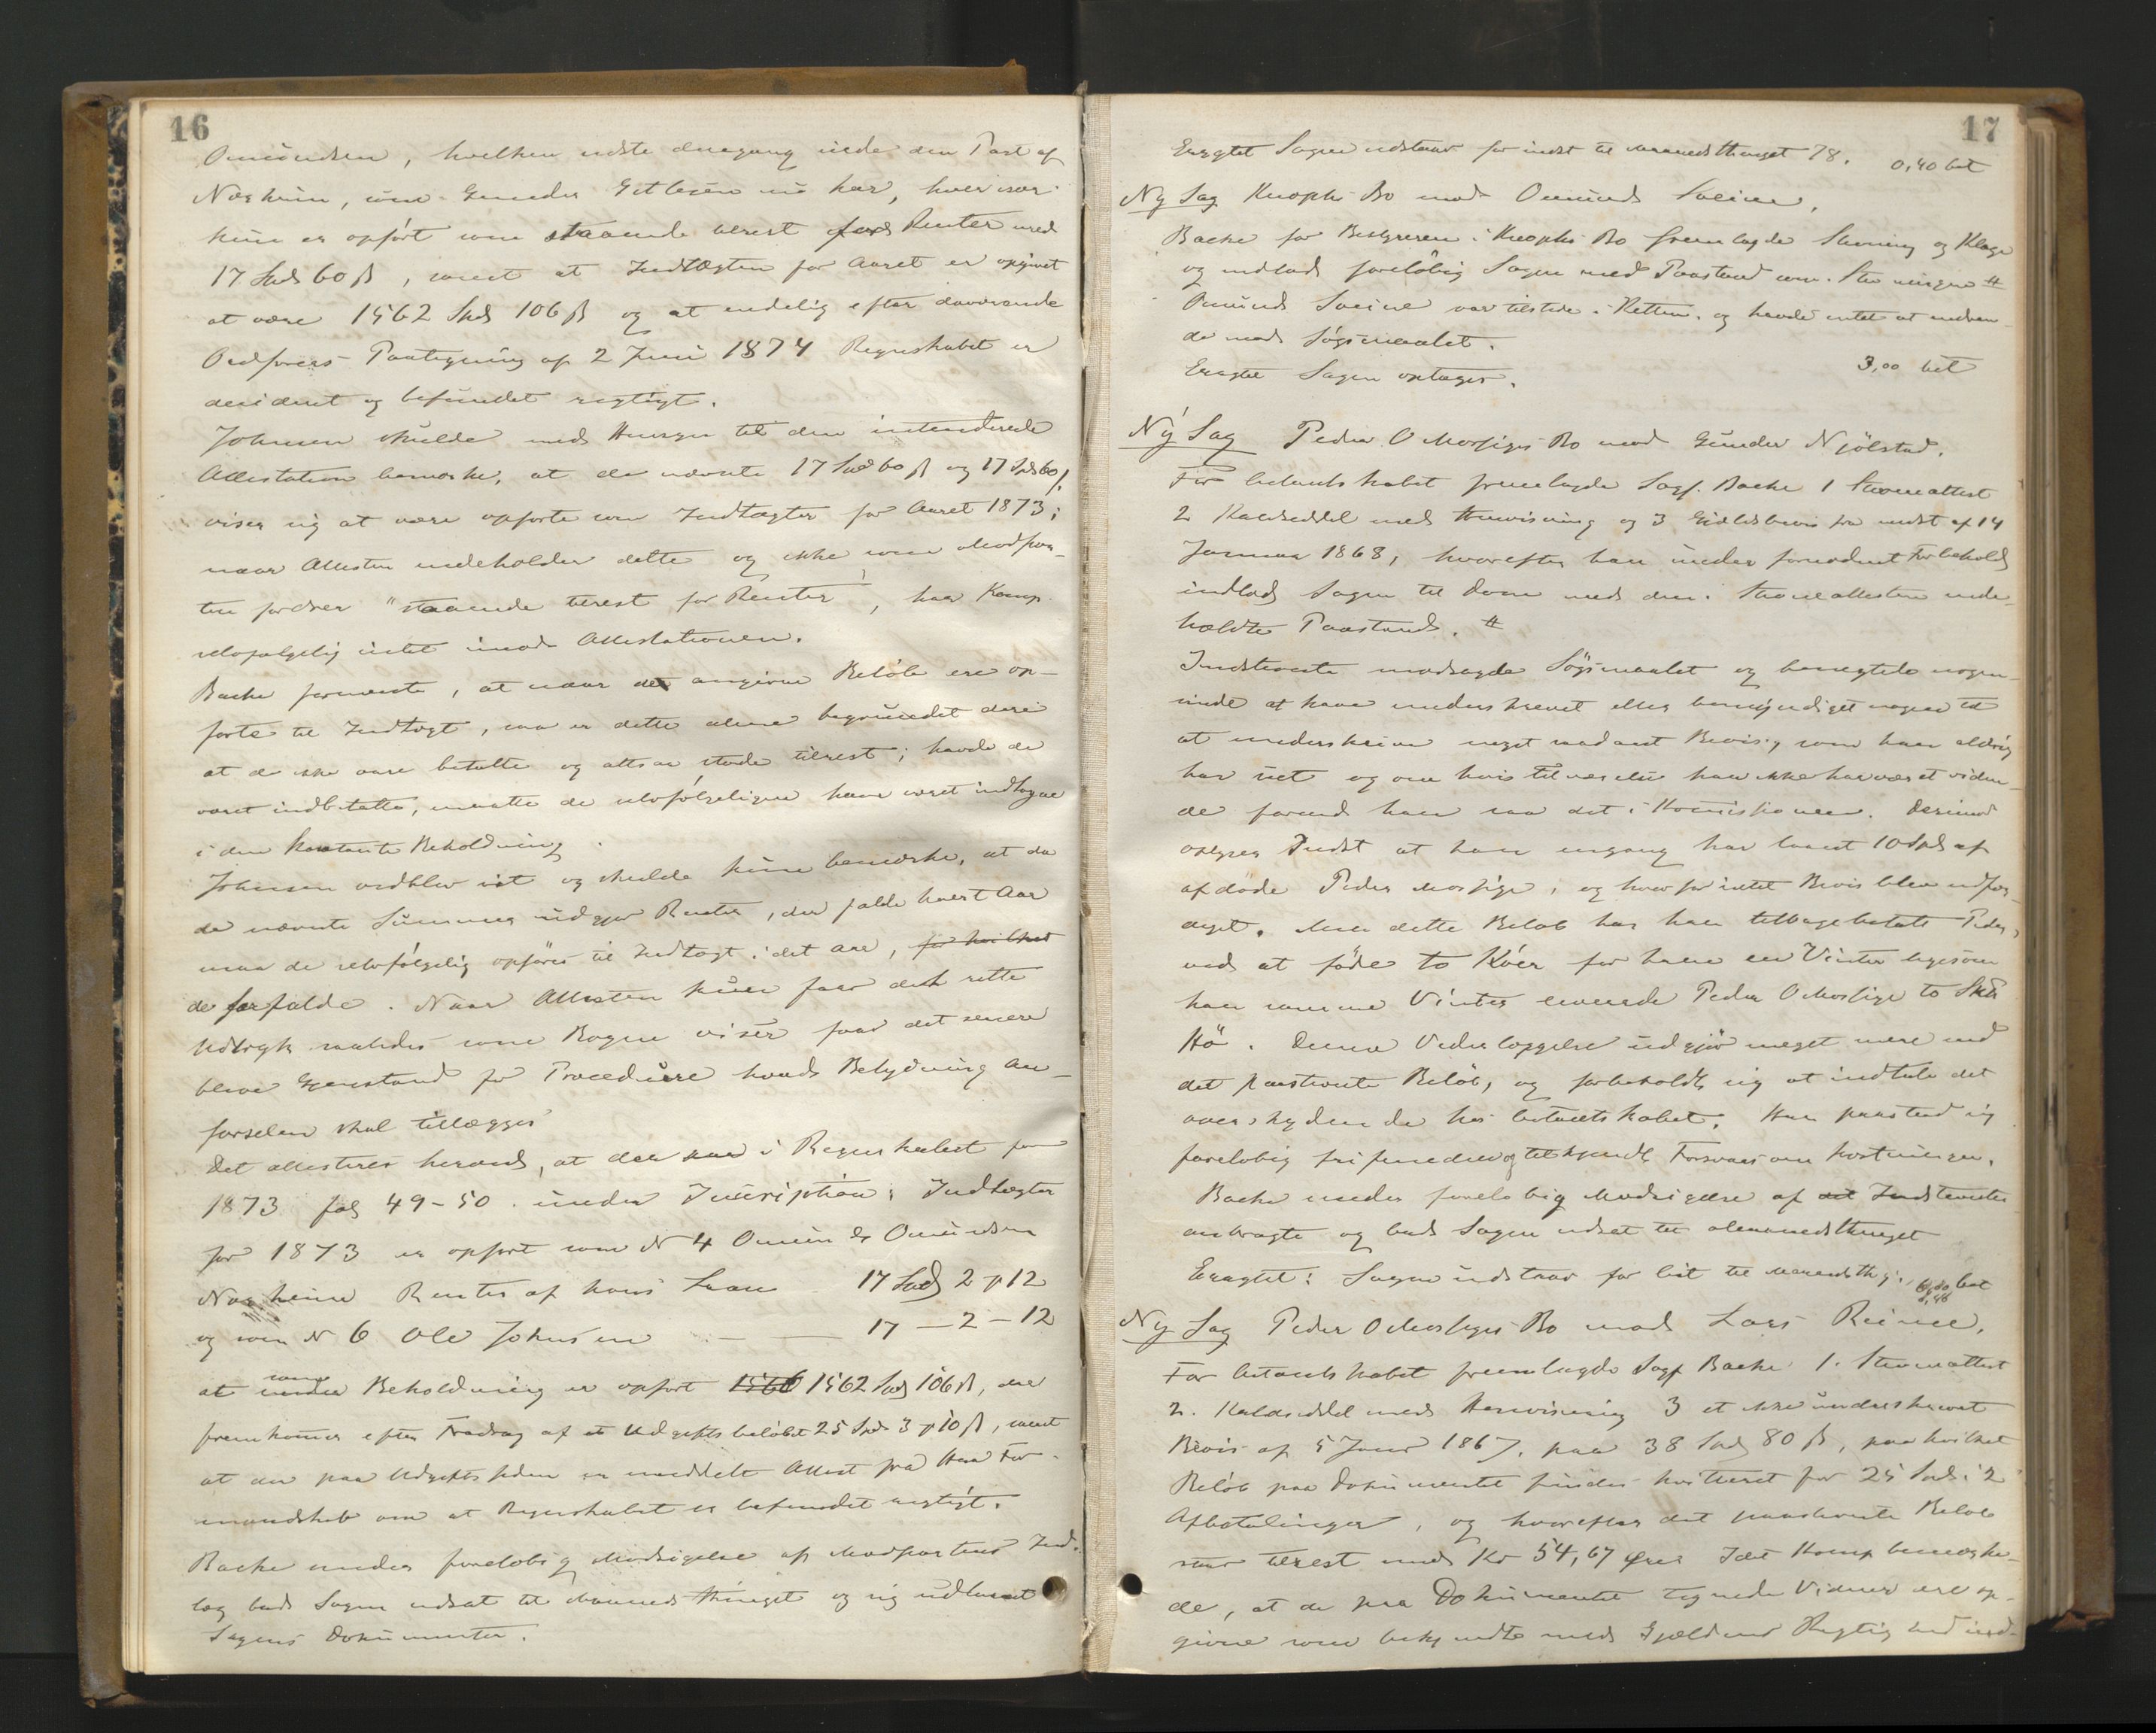 16
Omundsen, hvilken sidste dengang eiede den Part af
Næsheim, som Gunder Gitlesen nu har, hver især
kun er opført som staaende tilrest for Renter med
17 Spd 60 ß, samt at Indtægten for Aaret er opgivet
at være 1562 Spd 106 ß og at endelig efter daværende
Ordførers Paategning af 2 Juni 1874 Regnskabet er
decideret og befundet rigtigt.
Johnsen skulde med Hensyn til den intenderede
Attestation bemærke, at de nævnte 17 Spd 60 ß og 17 Spd 60 ß
viser sig at være opførte som Indtægter for Aaret 1873;
naar Attesten indeholder dette og ikke som Modpar-
ten fordrer "staaende tilrest for Renter", har Komp.
selvfølgelig intet imod Attestationen.
Backe formente, at naar de angivne Beløb ere op-
førte til Indtægt, saa er dette alene begrundet deri
at de ikke vare betalte og altsaa stode tilrest; havde de
været indbetalte, maatte de selvfølgeligen have været indtagne
i den kontante Beholdning.
Johnsen vedblev sit og skulde kun bemærke, at da
de nævnte Summer udgjør Renter, der falde hvert Aar
maa de selvfølgelig opføres til Indtægt i det Aar, for hvilket
de forfalde. Naar Attesten kun faar det rette
Udtryk saaledes som Bogen viser faar det senere
blive Gjenstand for Procedure hvad Betydning An-
førselen skal tillægges
Det attesteres herved, at der i Regnskabet for
1873 fol 49-50 under Inscription: Indtægter
for 1873 er opført som N 4 Omund Omundsen
Næsheim Renter af hans Laan 17 Spd 2 p 12
og som N 6 Ole Johnsen — — 17 — 2 — 12
at som Beholdning er opført 1566 1562 Spd 106 ß, der
fremkommer efter Fradrag af et Udgiftsbeløb 25 Spd 3 p 10 ß, samt
at der paa Udgiftssiden er meddelt Attest fra For-
mandskab om at Regnskabet er befundet rigtigt.
Backe under foreløbig Modsigelse af Modpartens Ind-
læg bad Sagen udsat til Maanedsthinget og sig udlaant
Sagens Dokumenter.
17
Eragtet Sagen udstaar for indst til Maanedsthinget 78. 0,40 bet
Ny Sag Knophs Bo mod Omund Sveine.
Backe for Bestyreren i Knophs Bo fremlagde Stevning og Klage
og indlod foreløbig Sagen med Paastand som i Stevningen #
Omund Sveine var tilstede i Retten og havde intet at indven-
de mod Søgsmaalet.
Eragtet Sagen optages. 3,00 bet
Ny Sag Peder O Morsiges Bo mod Gunder Njølstad.
For Citantskabet fremlagde Sagf. Backe 1 Stevneattest
2 Kaldseddel med Henvisning og 3 Gjældsbevis fra indst af 14
Januar 1868, hvorefter han under fornødent Forbehold
indlod Sagen til Dom med den i Stevneattesten inde-
holdte Paastand. #
Indstevnte modsagde Søgsmaalet og benegtede nogen-
sinde at have underskrevet eller bemyndiget nogen til
at underskrive noget saadant Bevis, som han aldrig
har seet og om hvis Tilværelse han ikke har været viden-
de forend han saa det i Komissionen. Derimod
oplyser Indst at han engang har laant 10 Spd af
afdøde Peder Morsige, og hvorfor intet Bevis blev udfær-
diget. Men dette Beløb har han tilbagebetalt Peder,
ved at føde to Køer for ham en Vinter ligesom
han samme Vinter leverede Peder O Morsige to Skb
Hö. Denne Vederlæggelse udgjør meget mere end
det paastevnte Beløb, og forbeholdt sig at indtale det
overskydende hos Citantskabet. Han paastod sig
foreløbig frifunden og tilkjendt Forsvar om Kostningen.
Backe under foreløbig Modsigelse af det Indstevnte
anbragte og bad Sagen udsat til Maanedsthinget
Eragtet: Sagen udstaar for Cit til Maanedsthg. bet
Ny Sag Peder O Morsiges Bo mod Lars Reime.
For Citantskabet fremlagde Sagf Backe 1. Stevneattest
2. Kaldseddel med Henvisning 3 et ikke underskrevet
Bevis af 5 Januar 1867, paa 38 Spd 80 ß, paa hvilket
Beløb paa Dokumentet findes kvitteret for 25 Spd i 2
Afbetalinger, og hvorefter det paastevnte Beløb
staar tilrest med Kr 54,67 Ører Idet Komp bemærke-
de, at de paa Dokumentet tegnede Vidner ere op-
givne som bekjendte med Gjældens Rigtighed ind-